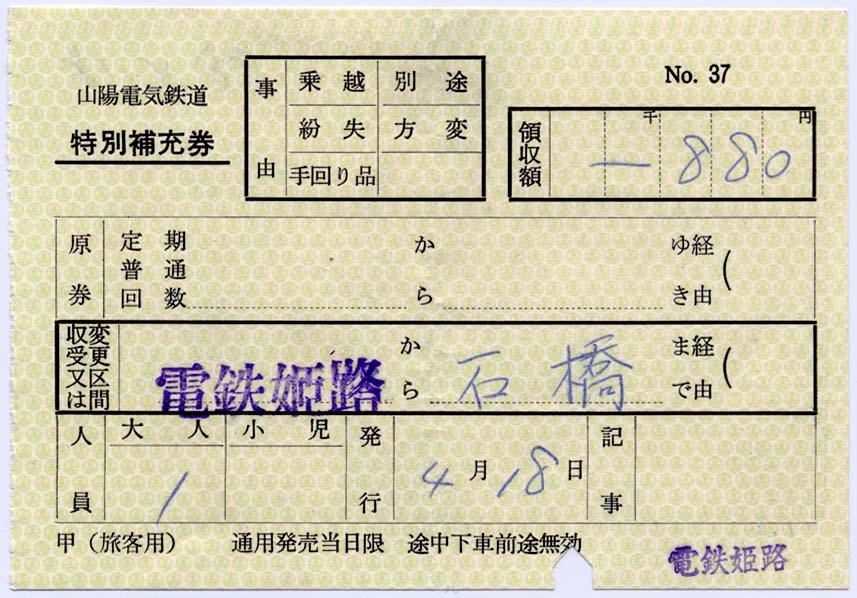 山陽電気鉄道
特別補充券
事由
乗越 別途
紛失 方変
手回り品
No. 37
領収額 千 円
一880
原券
定期
普通
回数
から
ゆき
経由 (
収受又は変更区間
電鉄姫路 から 石橋 まで 経由 (
人員
大人 小児
1
発行 4月18日
記事
甲(旅客用) 通用発売当日限 途中下車前途無効
電鉄姫路